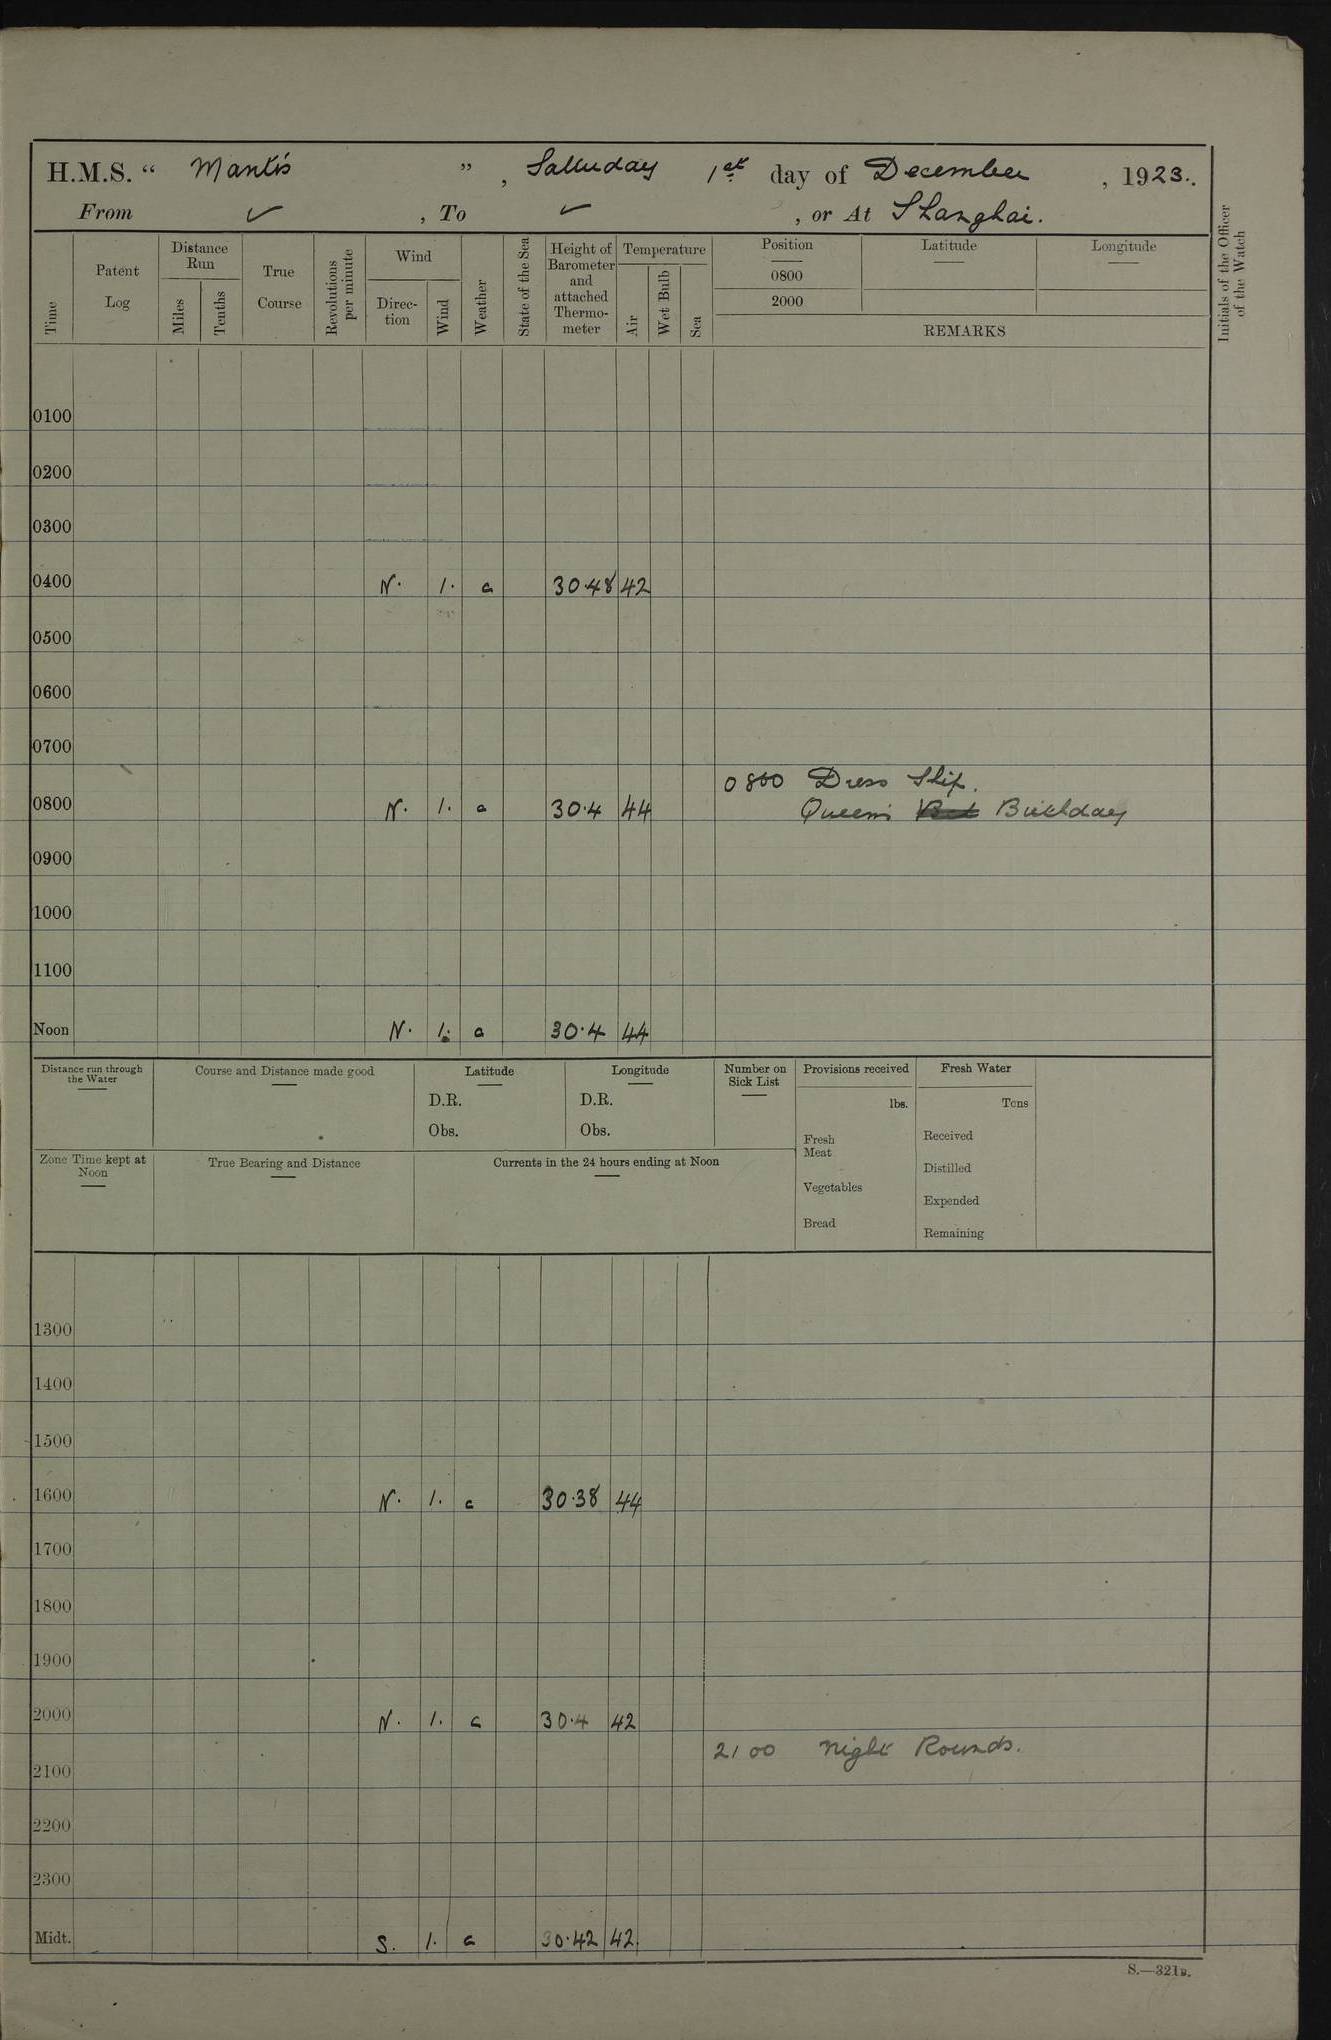 H.M.S. “ Mantis ”, Saturday 1st day of December, 1923.
From ✓, To ✓, or At Shanghai.
Time
Patent Log
Distance Run
Miles
Tenths
True Course
Revolutions per minute
Wind
Direction
Wind
Weather
State of the Sea
Height of Barometer and attached Thermometer
Temperature
Air
Wet Bulb
Sea
Position
0800
2000
Latitude
Longitude
REMARKS
Initials of the Officer of the Watch
0100
0200
0300
0400 N. 1. c 30.48 42
0500
0600
0700
0800 Dress Ship.
0800 N. 1. c 30.4 44 Queen's Birthday
0900
1000
1100
Noon N. 1. c 30.4 44
Distance run through the Water
Course and Distance made good
Latitude
D.R.
Obs.
Longitude
D.R.
Obs.
Number on Sick List
Provisions received
lbs.
Fresh Meat
Vegetables
Bread
Fresh Water
Tons
Received
Distilled
Expended
Remaining
Zone Time kept at Noon
True Bearing and Distance
Currents in the 24 hours ending at Noon
1300
1400
1500
1600 N. 1. c 30.38 44
1700
1800
1900
2000 N. 1. c 30.4 42
2100 Night Rounds.
2100
2200
2300
Midt. S. 1. c 30.42 42.
S.—321B.